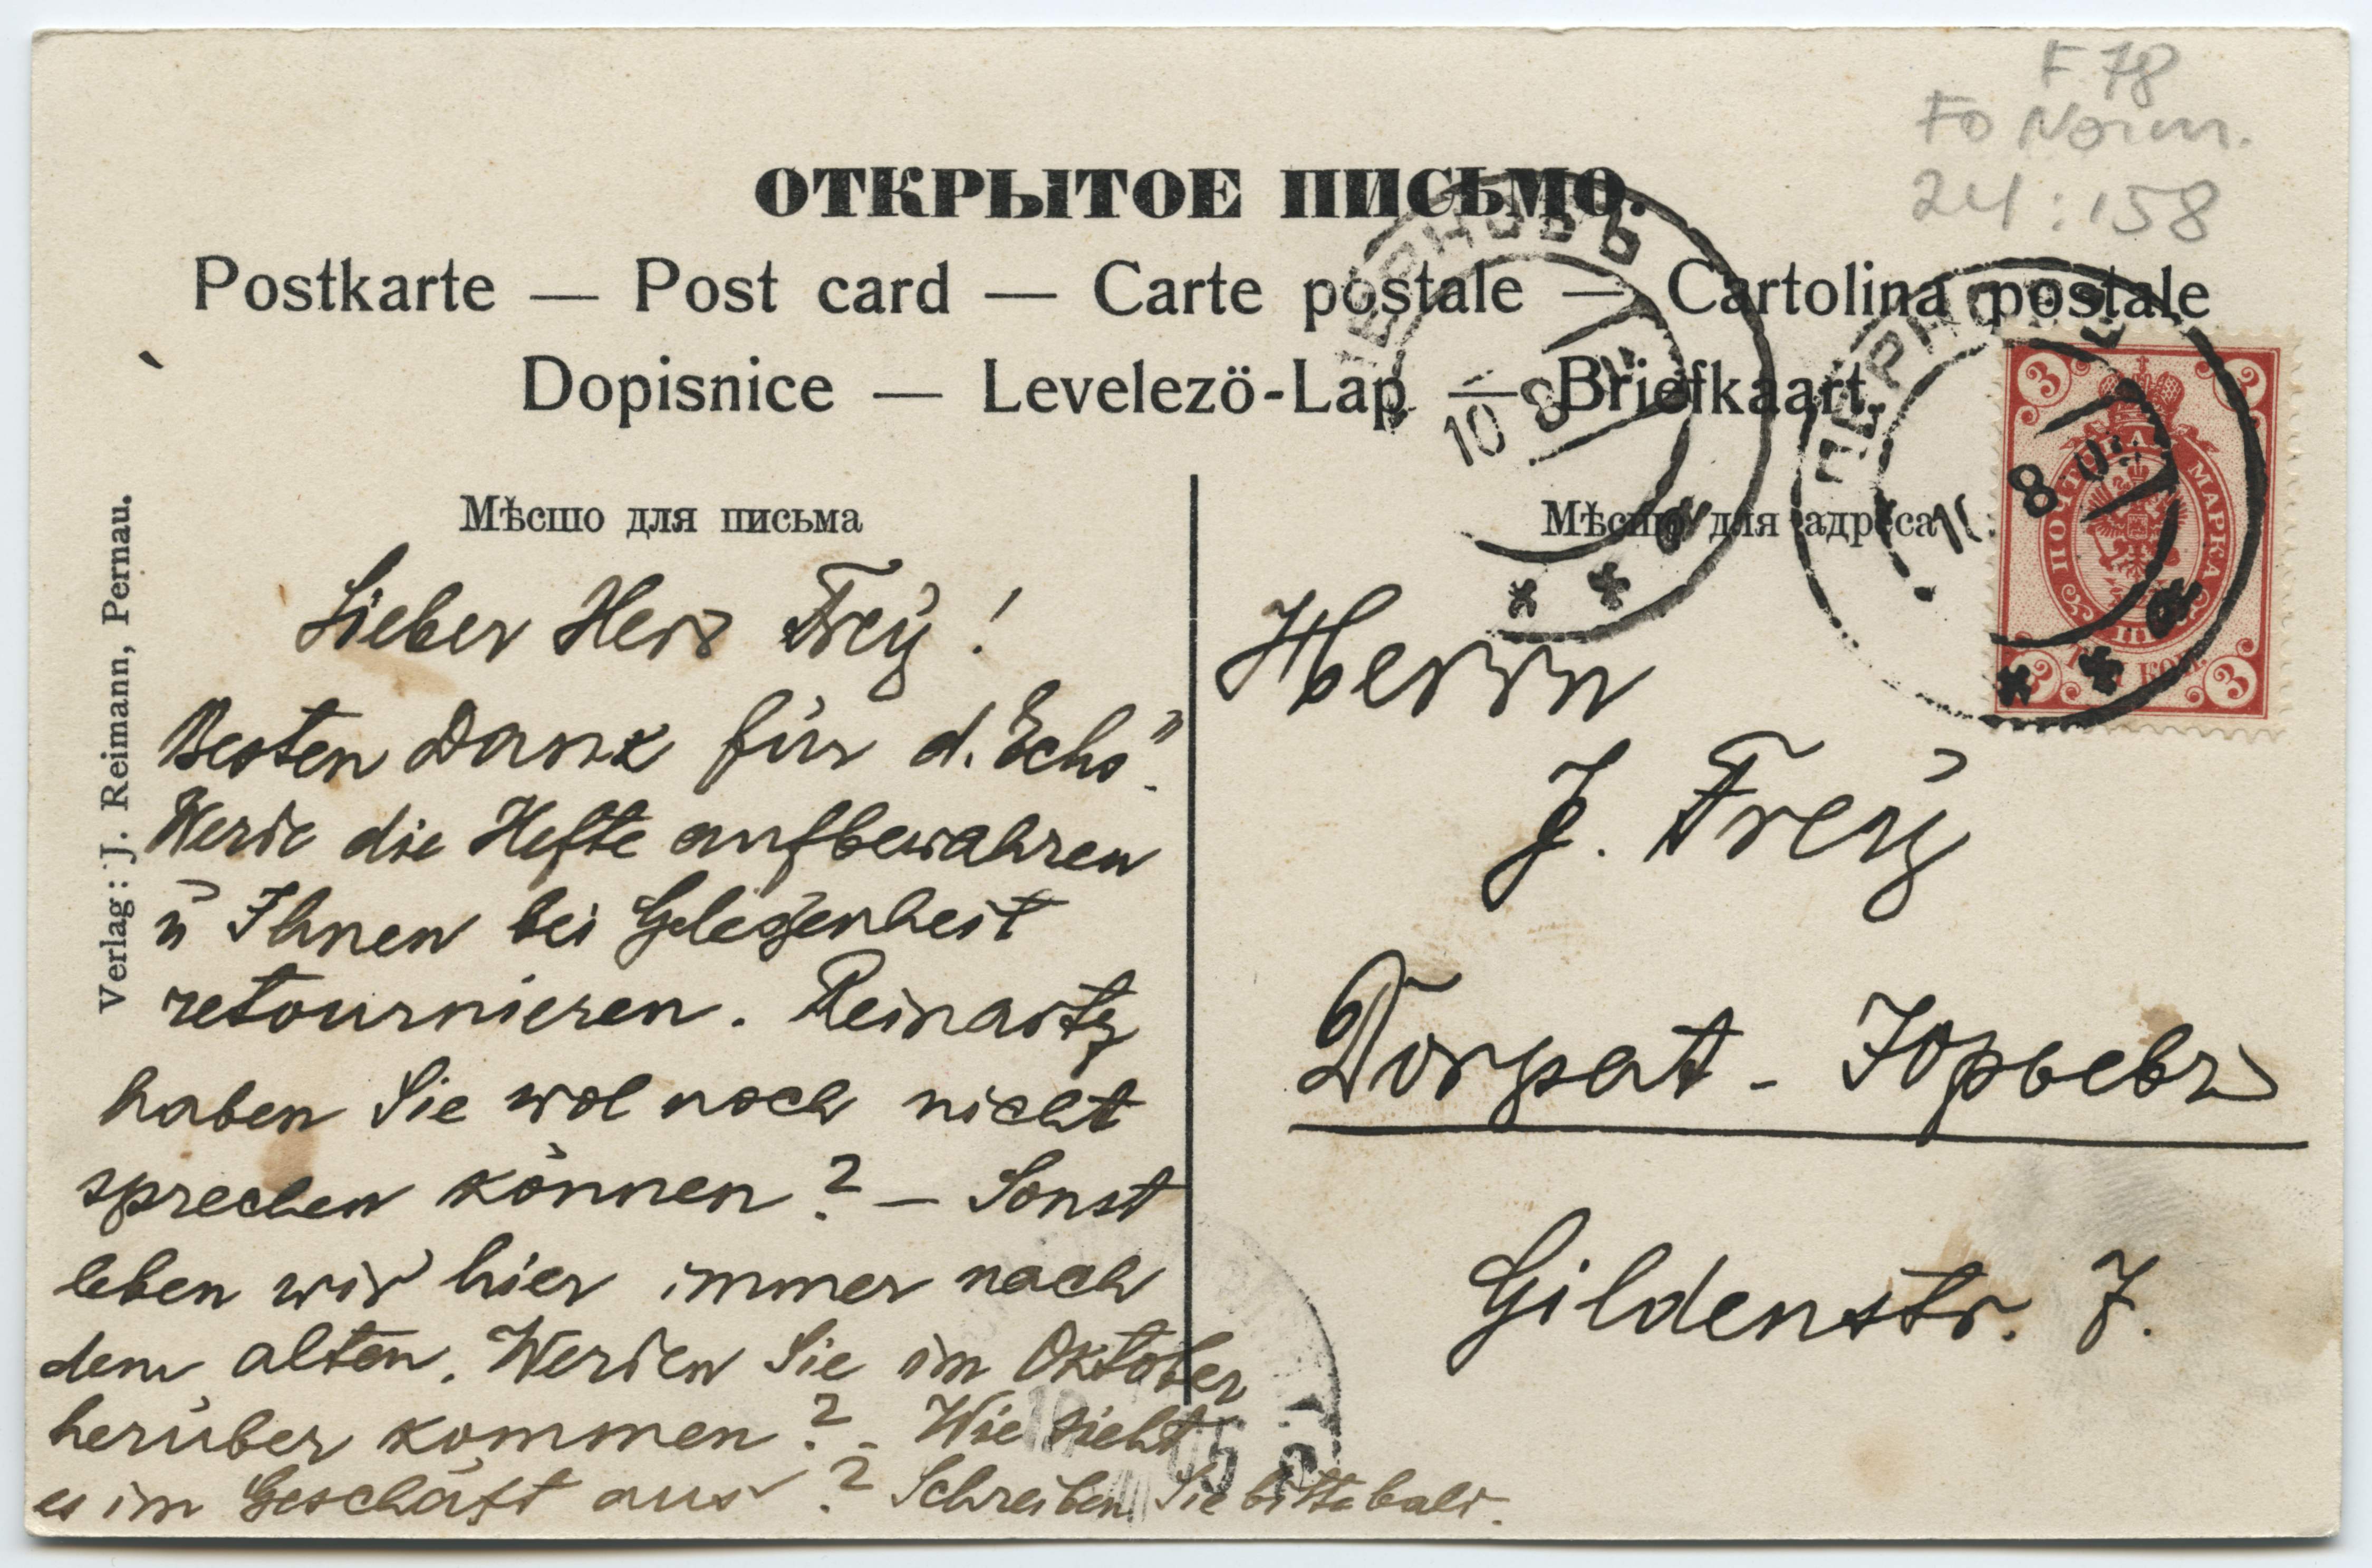 F 78
Fo Norm.
24:158
ОТКРЫТОЕ ПИСЬМО.
Postkarte — Post card — Carte postale — Cartolina postale
Dopisnice — Levelezö-Lap — Briefkaart.
ПЕРНОВЪ
10 8
ПЕРНОВЪ
8
3 3
ПОЧТОВАЯ МАРКА
ТРИ КОП.
3 3
Мѣсто для письма
Мѣсто для адреса
Verlag: J. Reimann, Pernau.
Lieber Herr Frey!
Besten Dank für d. „Echo".
Werde die Hefte aufbewahren
u Ihnen bei Gelegenheit
retournieren. Reinartz
haben Sie wol noch nicht
sprechen können? – Sonst
leben wir hier immer nach
dem alten. Werden Sie im Oktober
herüber kommen? – Wie sieht
es im Geschäft aus? Schreiben Sie bitte bald.
Herrn
J. Frey
Dorpat - Юрьевъ
Gildenstr. 7.